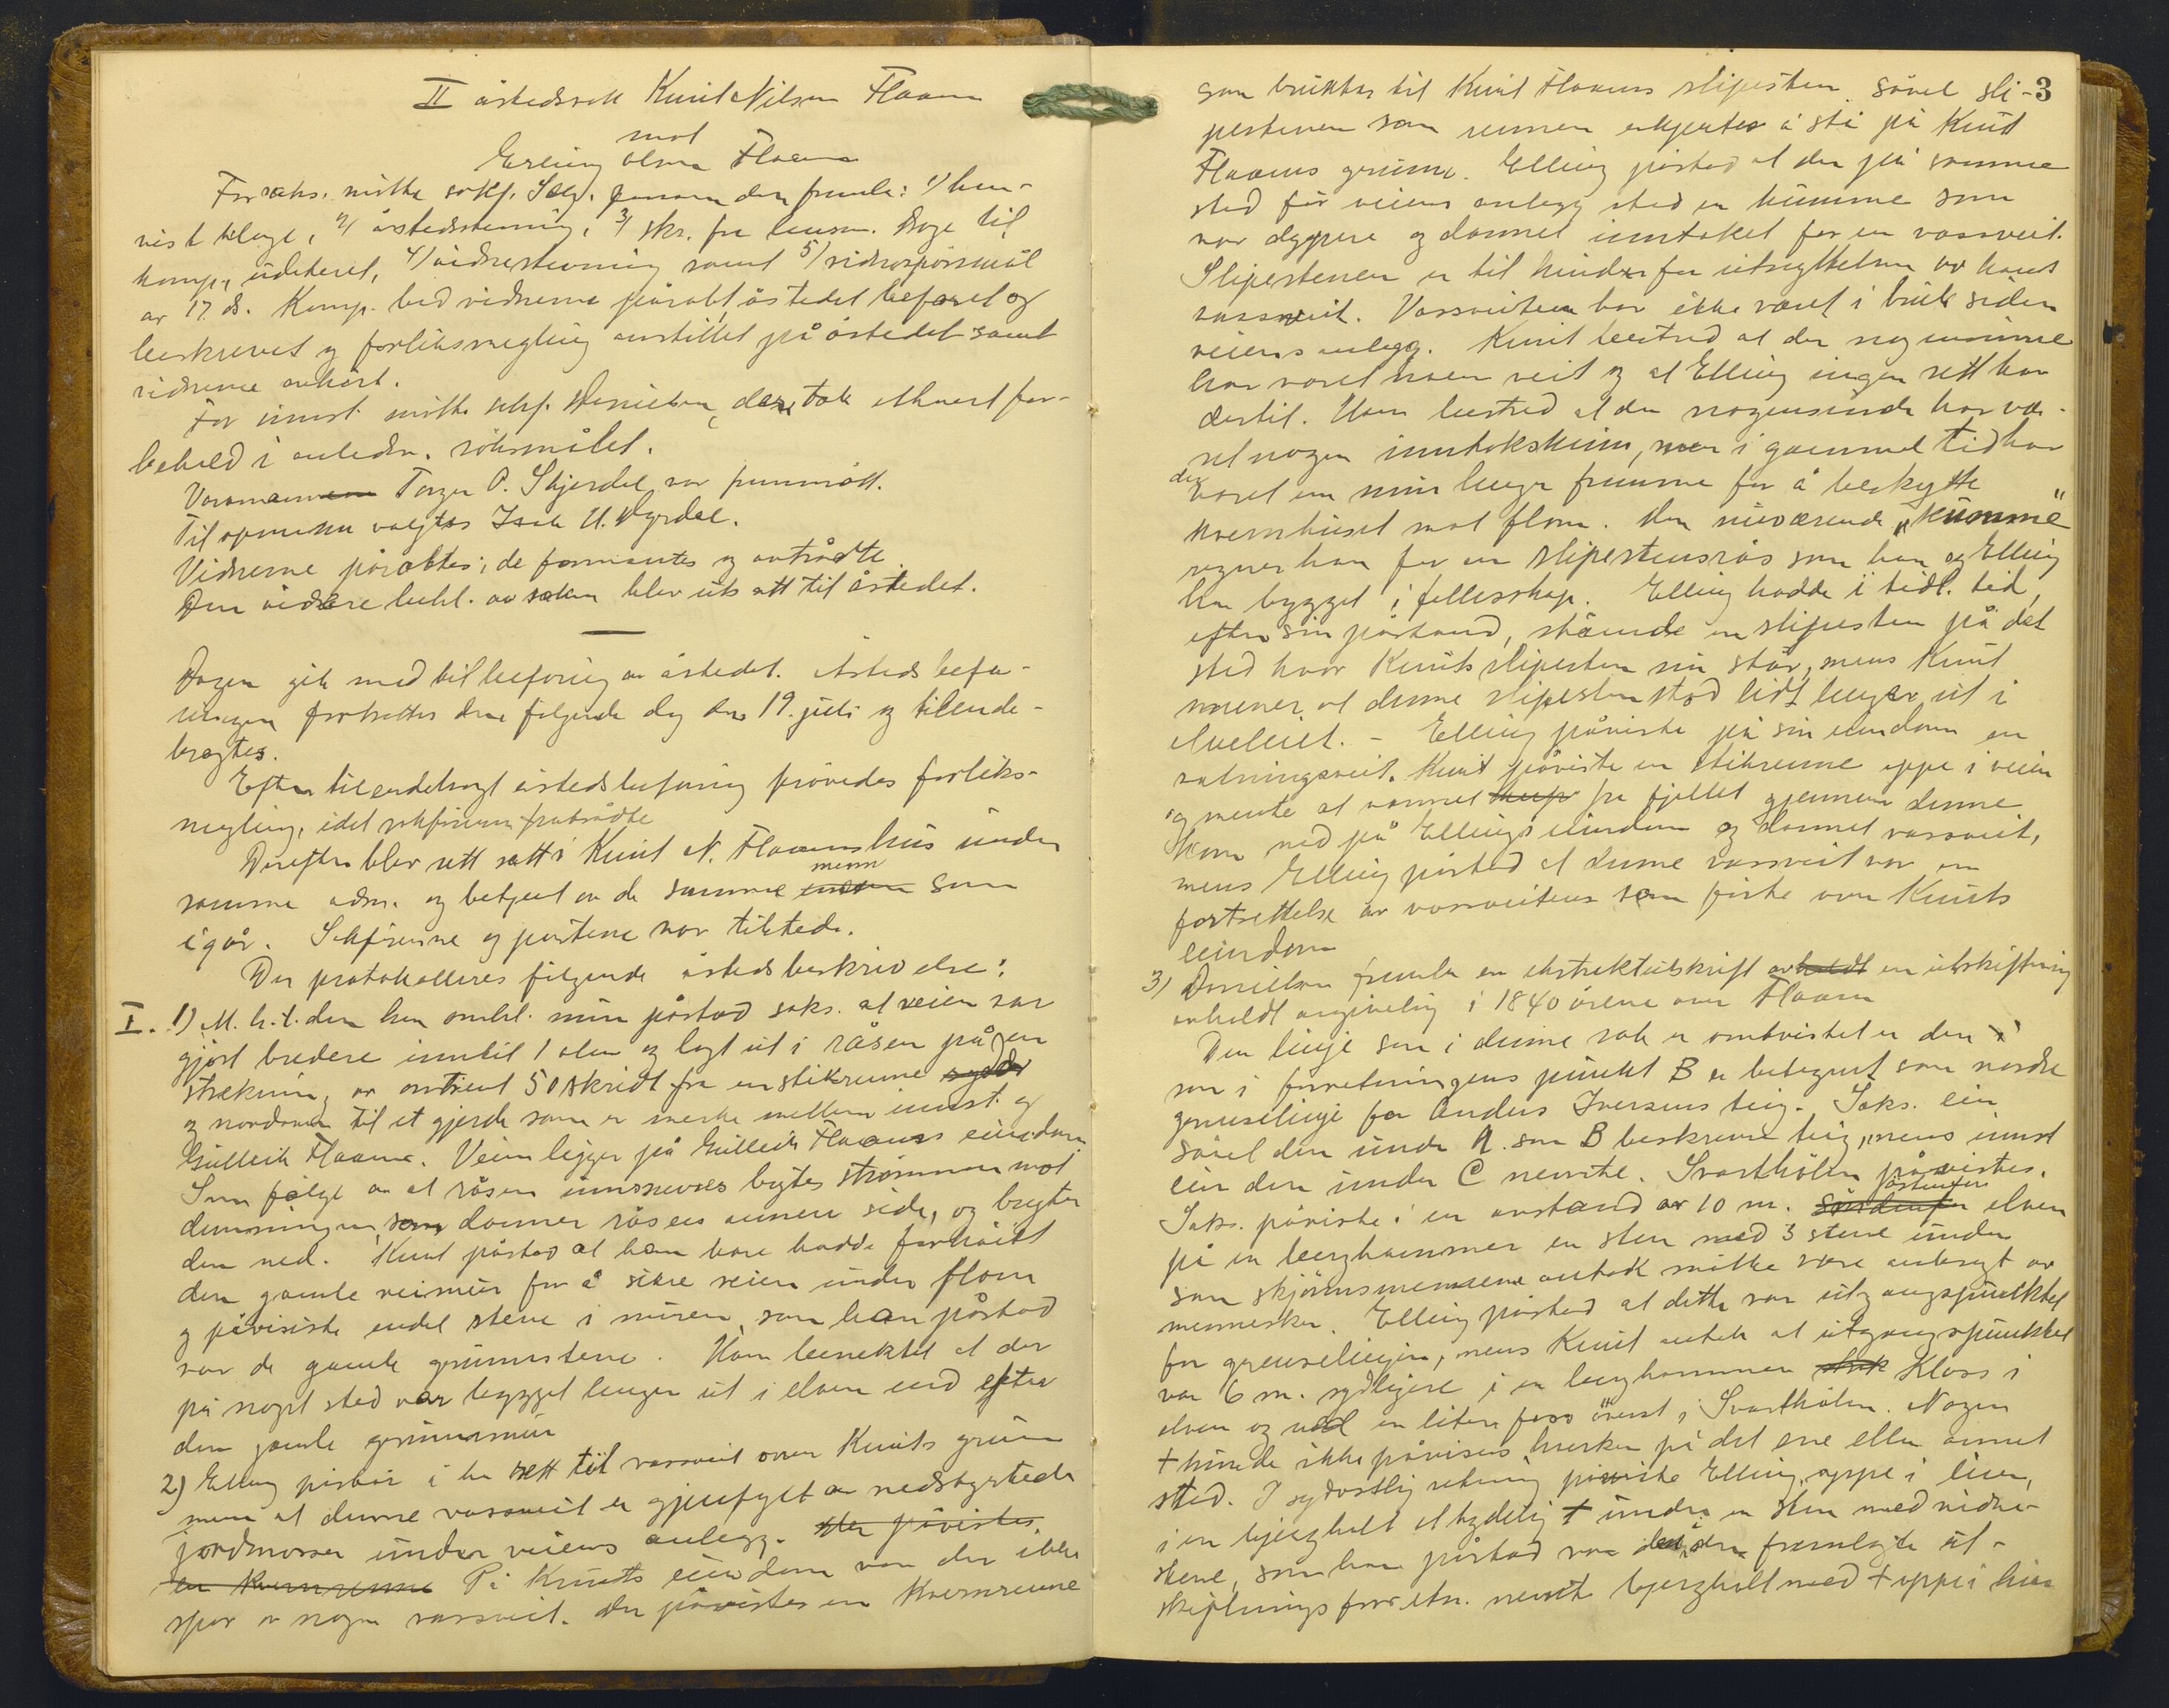 II åstedssak Knut Nilsen Flaam
mot
Elling Olsen Flaam
For saks. møtte sakf. Selj. som fremla: 1/ hen-
vist klage, 2/ åstedsstevning, 3/ skr. fra lensm. Boge til
komp. udatert, 4/ vidnestevning samt 5/ vidnespørsmål
av 17 ds. Komp. bad vidnerne påropt, åstedet befaret og
beskrevet og forliksmegling anstillet på åstedet samt
vidnerne avhørt.
For innst. møtte sakf. Danielsen, der tok ethvert for-
behold i anledn. søksmålet.
Varamannen Torger P. Skjerdal var fremmøtt.
Til opmenn valgtes Isak U. Dyrdal.
Vidnerne påroptes; de formantes og avtrådte.
Den videre behl. av saken blev utsatt til åstedet.
Dagen gik med til befaring av åstedet. Åstedsbefa-
ringen fortsattes den følgende dag den 19. juli og tilende-
bragtes.
Efter tilendebragt åstedsbefaring prøvedes forliks-
megling, idet sakførerne fratrådte
Derefter blev rett satt i Knut N. Flaams hus under
samme adm. og betjent av de samme menn som
igår. Sakførerne og partene var tilstede.
Der protokolleres følgende åstedsbeskrivelse:
I. 1) M.h.t. den her omhl. mur påstod saks. at veien var
gjort bredere inntil 1 alen og lagt ut i råsen på en
strekning av omtrent 50 skridt fra en stikrenne
og nordover til et gjerde som er merke mellem innst. og
Gulleik Flaam. Veien ligger på Gullek Flaams eiendom.
Som følge av at råsen innsnevres brytes strømmen mot
demningen, som danner råsens annen side, og bryter
den ned. Knut påstod at han bare hadde forhøiet
den gamle veimur for å sikre veien under flom
og påviste endel stene i muren, som han påstod
var de gamle grunnstene. Han benektet at der
på noget sted var bygget lenger ut i elven end efter
den gamle grunnmur
2) Elling påstår å ha rett til vassveit over Knuts grunn
men at denne vassveit er gjenfylt av nedstyrtede
jordmasser under veiens anlegg. Der påvistes
en kvernrenne På Knuts eiendom var der ikke
spor av nogen vassveit. Der påvistes en kvernrenne
3
som bruktes til Knut Flaams slipesten. Såvel sli-
pestenen som rennen erkjentes å stå på Knut
Flaams grunn. Elling påstod at der på samme
sted før veiens anlegg stod en kumme som
var dypere og dannet inntaket for en vassveit.
Slipestenen er til hinder for utnyttelsen av hans
vassveit. Vassveiten har ikke været i bruk siden
veiens anlegg. Knut bestred at der nogensinne
har været noen veit og at Elling ingen rett har
dertil. Han bestred at der nogensinde har væ-
ret nogen inntakskum, men i gammel tid har
der været en mur lenger fremme for å beskytte
kvernhuset mot flom. Den nuværende "kumme"
regner han for en slipestensrås som han og Elling
har bygget i fellesskap. Elling hadde i tidl. tid,
efter sin påstand, stående en slipesten på det
sted hvor Knuts slipesten nu står, mens Knut
mener at denne slipesten stod lidt lenger ut i
elveleiet. – Elling påviste på sin eiendom en
vatningsveit. Knut påviste en stikrenne oppe i veien
og mente at vannet fra fjellet gjennem denne
kom ned på Ellings eiendom og dannet vassveit,
mens Elling påstod at denne vassveit var en
fortsettelse av vassveiten som førte over Knuts
eiendom
3) Danielsen fremla en ekstraktutskrift avholdt en utskiftning
avholdt angivelig i 1840 årene over Flaam
Den linje som i denne sak er omtvistet er den
som i forretningens punkt B er betegnet som nordre
grenselinje for Anders Iversens teig. Saks. eier
såvel den under A. som B beskrevne teig, mens innst
eier den under C nevnte. Svarthølen påvistes.
Saks. påviste i en avstand av 10 m. østenfor elven
på en berghammer en sten med 3 stene under
som skjønnsmennene antok måtte være anbragt av
mennesker. Elling påstod at dette var utgangspunktet
for grenselinjen, mens Knut antok at utgangspunktet
var 6 m. sydligere i en berghammer kloss i
elven og ved en liten foss øverst i Svarthølen. Nogen
+ kunde ikke påvises hverken på det ene eller annet
sted. I sydostlig retning påviste Elling, oppe i lien,
i en bjerghall et tydelig + under en sten med vidne-
stene, som han påstod var den i den fremlagte ut-
skiftningsforretn. nevnte bjerghall med + oppe i lien